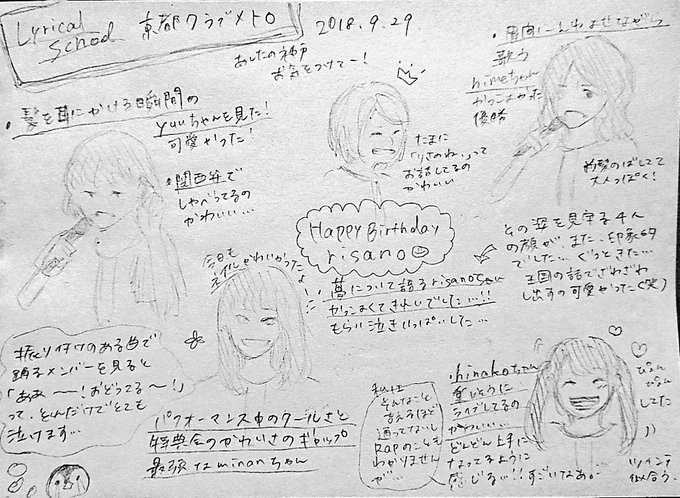 Lyrical
School
京都クラブメトロ
2018.9.29
あしたの神戸
お気をつけてー!
・髪を耳にかける瞬間の
yuuちゃんを見た!
可愛かった!
・関西弁で
しゃべってるの
かわいい…
たまに
「りさのね、」って
お話してるの
かわいい
歌う
himeちゃん
かっこよかった
優勝
前髪のばしてて
大人っぽく!
Happy Birthday
risano
夢について語るrisanoちゃん
かっこよくてきれいでした…!!
もらい泣きいっぱいした…
その姿を見守る4人
の顔が、また、印象的
でした…ぐっときた…
王国の話でざわざわ
し出すの可愛かった(笑)
今日も
ネイルかわいかったよ!
振り付けのある曲で
踊るメンバーを見ると
「ああ〜!おどってる〜!」
って、とんだけでとても
泣けます…
パフォーマンス中のクールさと
特典会のかわいさのギャップ
最強なminanちゃん
私は
そんなこと
言えるほど
通ってないし
Rapのことも
わかりません
が…
・hinakoちゃん
ライブしてるの
かわいい…
どんどん上手に
なってるように
感じる…!!すごいなあ。
ぴょん
ぴょん
してた
ツインテ
似合う。